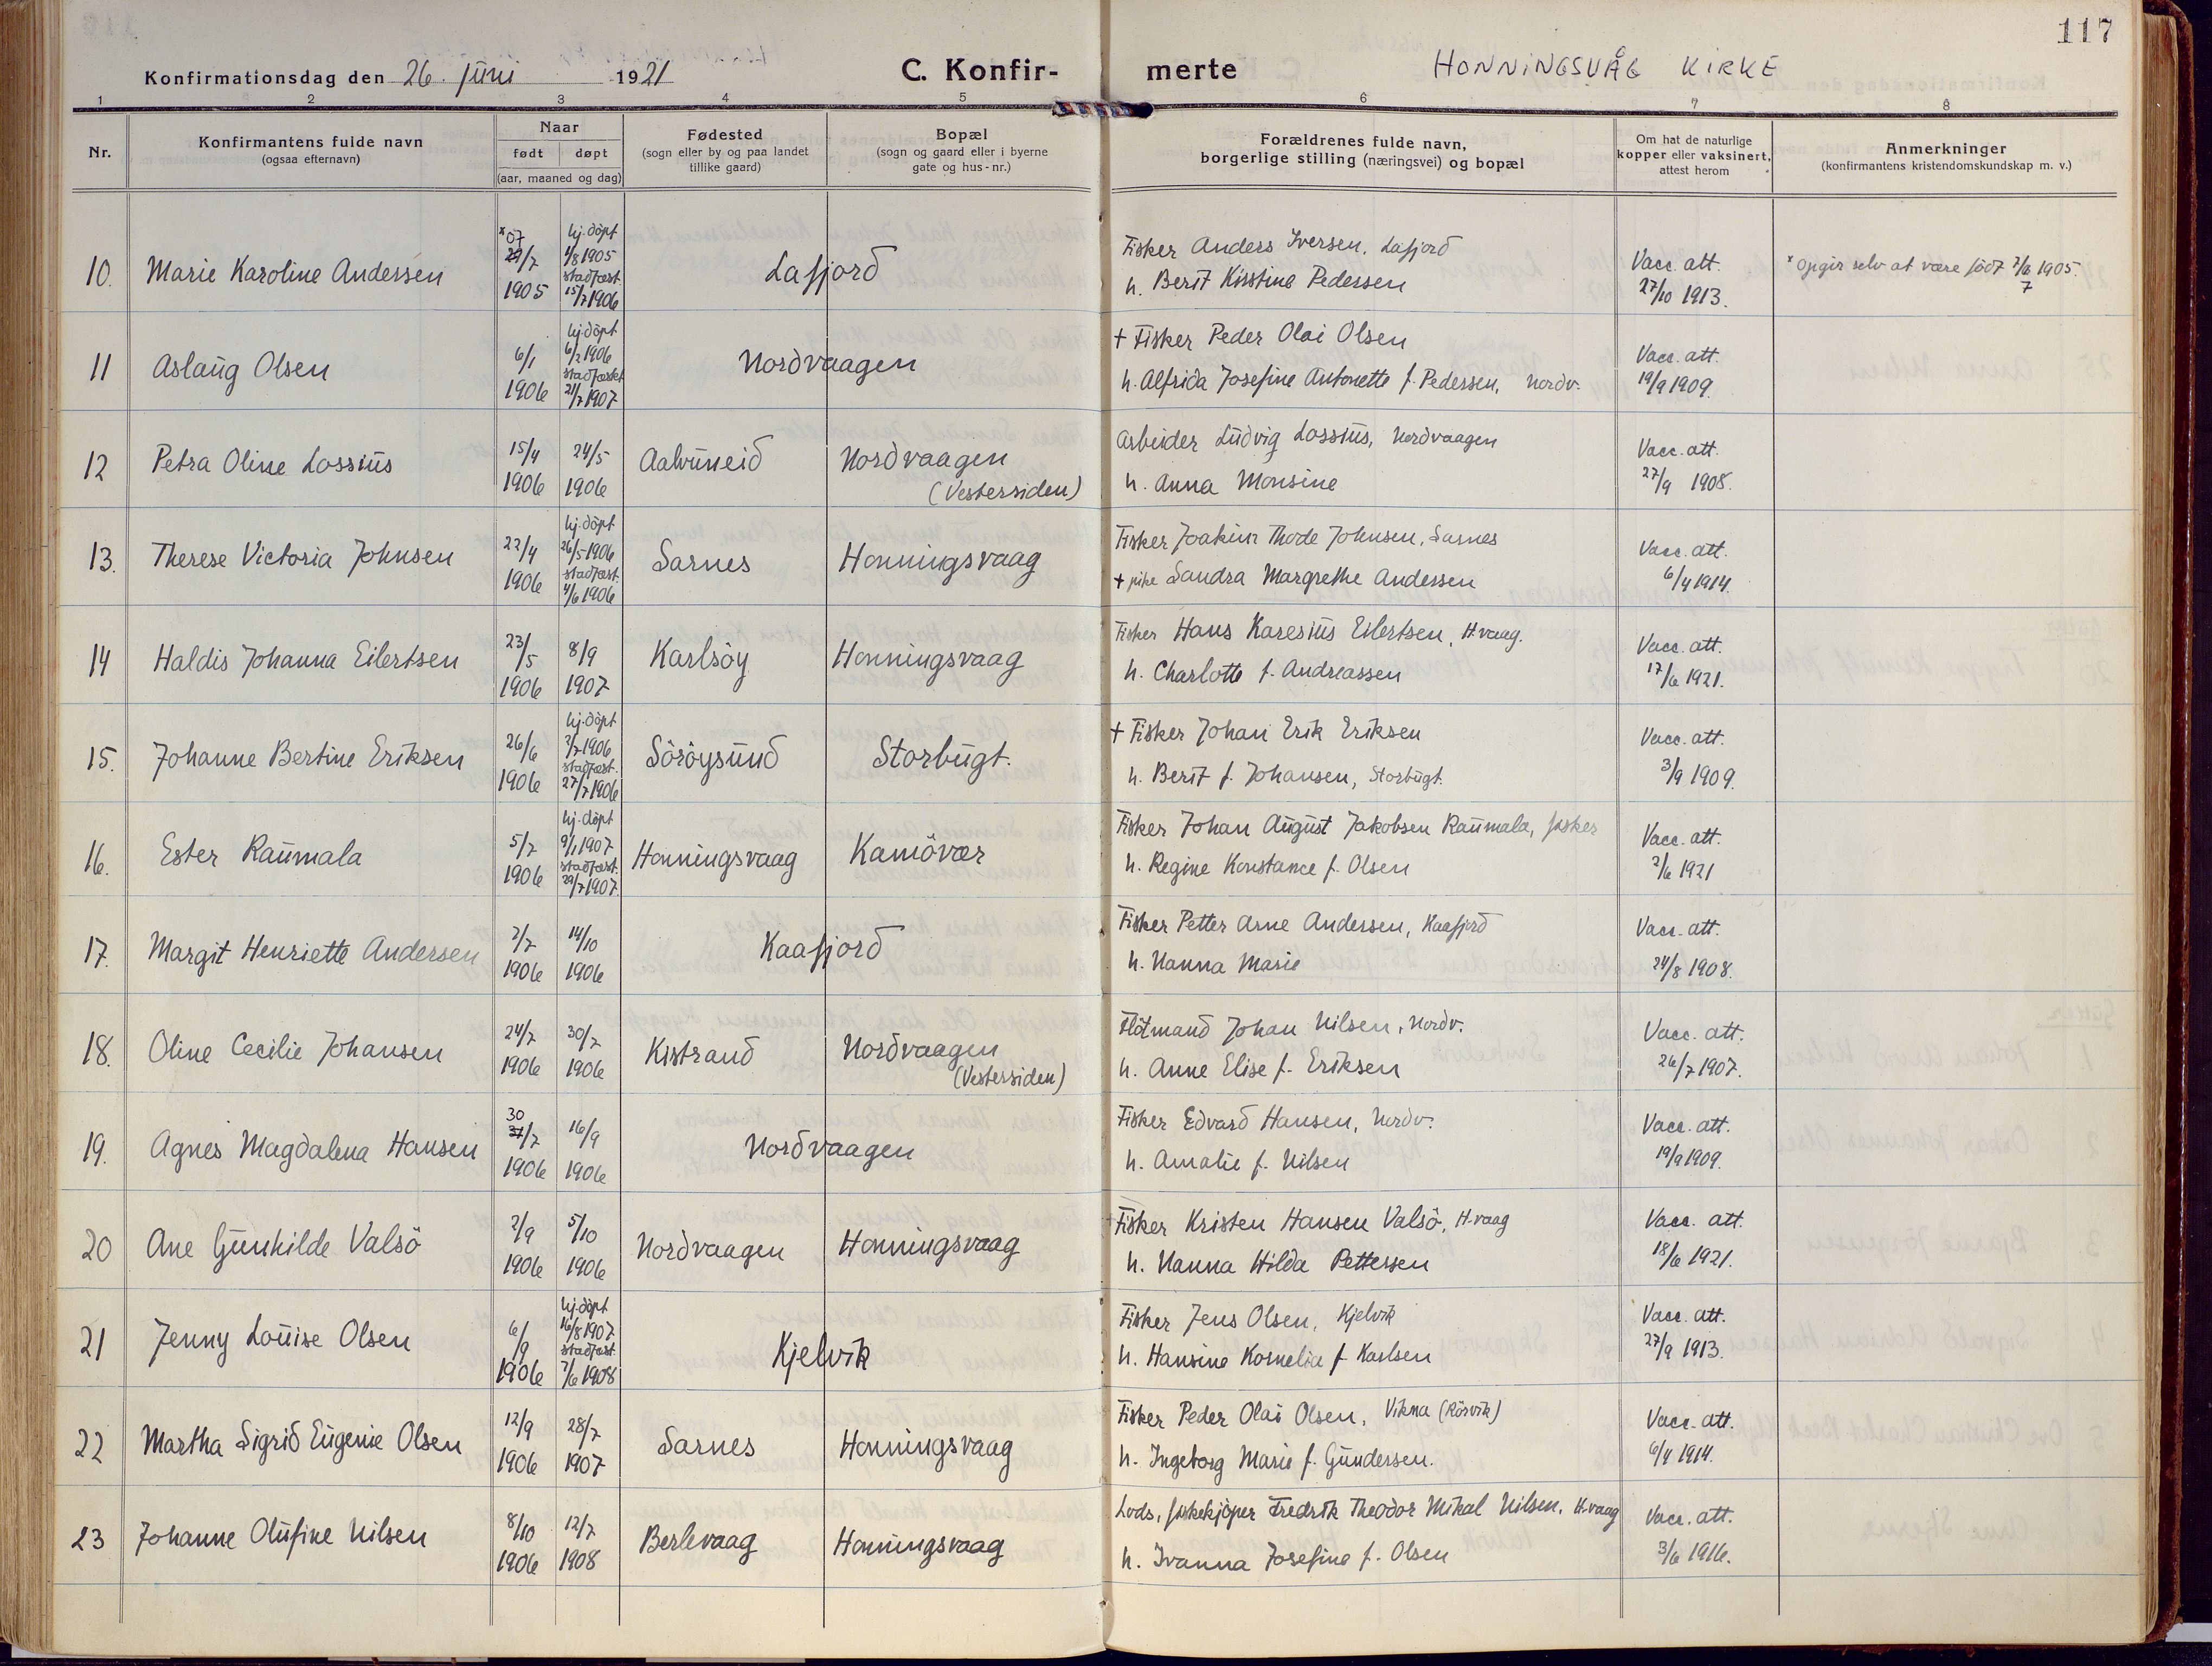 117
Konfirmationsdag den 26. juni 1921
C. Konfir-merte
HONNINGSVÅG KIRKE
1 2 3 4 5 6 7 8
Nr.
Konfirmantens fulde navn
(ogsaa efternavn)
Naar
født døpt
(aar, maaned og dag)
Fødested
(sogn eller by og paa landet
tillike gaard)
Bopæl
(sogn og gaard eller i byerne
gate og hus-nr.)
Forældrenes fulde navn,
borgerlige stilling (næringsvei) og bopæl
Om hat de naturlige
kopper eller vaksinert,
attest herom
Anmerkninger
(konfirmantens kristendomskundskap m. v.)
10. Marie Karoline Anderssen
x 07
29/7
1905
hj. döpt
4/8 1905
stadfæst.
15/7 1906
Lafjord
Fisker Anders Iversen, Lafjord
h. Berit Kirstine Pederssen
Vacc. att.
27/10 1913.
x Opgir selv at være född 7/6 1905.
7
11 Aslaug Olsen
6/1
1906
hj. döpt
6/2 1906
stadfæstet
21/7 1907
Nordvaagen
+ Fisker Peder Olai Olsen
h. Alfrida Josefine Antonette f. Pederssen, Nordv.
Vacc. att.
19/9 1909.
12 Petra Oline Lossius
15/4
1906
24/5
1906
Aalvuneid
Nordvaagen
(Vestersiden)
Arbeider Ludvig Lossius, Nordvaagen
h. Anna Monsine
Vacc. att.
27/9 1908.
13. Therese Victoria Johnsen
22/4
1906
hj. döpt
26/5 1906
stadfæst.
4/6 1906
Sarnes
Honningsvaag
Fisker Joakim Thode Johnsen, Sarnes
+ pike Sandra Margrethe Anderssen
Vacc. att.
6/4 1914.
14 Haldis Johanna Eilertsen
23/5
1906
8/9
1907
Karlsöy
Honningsvaag
Fisker Hans Karesius Eilertsen, H.vaag.
h. Charlotte f. Andreassen
Vacc. att.
17/6 1921.
15. Johanne Bertine Eriksen
26/6
1906
hj. döpt
7/7 1906
stadfæst.
27/7 1906
Söröysund
Storbugt.
+ Fisker Johan Erik Eriksen
h. Berit f. Johansen, Storbugt.
Vacc. att.
3/9 1909.
16. Ester Raumala
5/7
1906
hj. döpt
9/1 1907
stadfæst.
29/7 1907.
Honningsvaag
Kamövær
Fisker Johan August Jakobsen Raumala, fisker
h. Regine Konstance f. Olsen
Vacc. att.
2/6 1921
17. Margit Henriette Andersen
7/7
1906
14/10
1906
Kaafjord
Fisker Petter Arne Andersen, Kaafjord
h. Nanna Marie
Vacc. att.
24/8 1908.
18. Oline Cecilie Johansen
24/7
1906
30/7
1906
Kistrand
Nordvaagen
(Vestersiden)
Flötmand Johan Nilsen, Nordv.
h. Anne Elise f. Eriksen
Vacc. att.
26/7 1907.
19. Agnes Magdalena Hansen
30
31/7
1906
16/9
1906
Nordvaagen
Fisker Edvard Hansen, Nordv.
h. Amalie f. Nilsen
Vacc. att.
19/9 1909.
20 Ane Gunhilde Valsö
2/9
1906
5/10
1906
Nordvaagen
Honningsvaag
Fisker Kristen Hansen Valsö, H.vaag
h. Nanna Hilda Petterssen
Vacc. att.
18/6 1921.
21 Jenny Louise Olsen
6/9
1906
hj. döpt
16/8 1907
stadfæst.
7/6 1908
Kjelvik
Fisker Jens Olsen, Kjelvik
h. Hansine Kornelia f. Karlsen
Vacc. att.
27/9 1913.
22 Martha Sigrid Eugenie Olsen
12/9
1906
28/7
1907
Sarnes
Honningsvaag
Fisker Peder Olai Olsen, Vikma (Rörvik)
h. Ingeborg Marie f. Gundersen.
Vacc. att.
6/4 1914.
23 Johanne Olufine Nilsen
8/10
1906
12/7
1908
Berlevaag
Honningsvaag
Lods, fiskekjöper Fredrik Theodor Mikal Nilsen, H.vaag
h. Ivanna Josefine f. Olsen
Vacc. att.
3/6 1916.